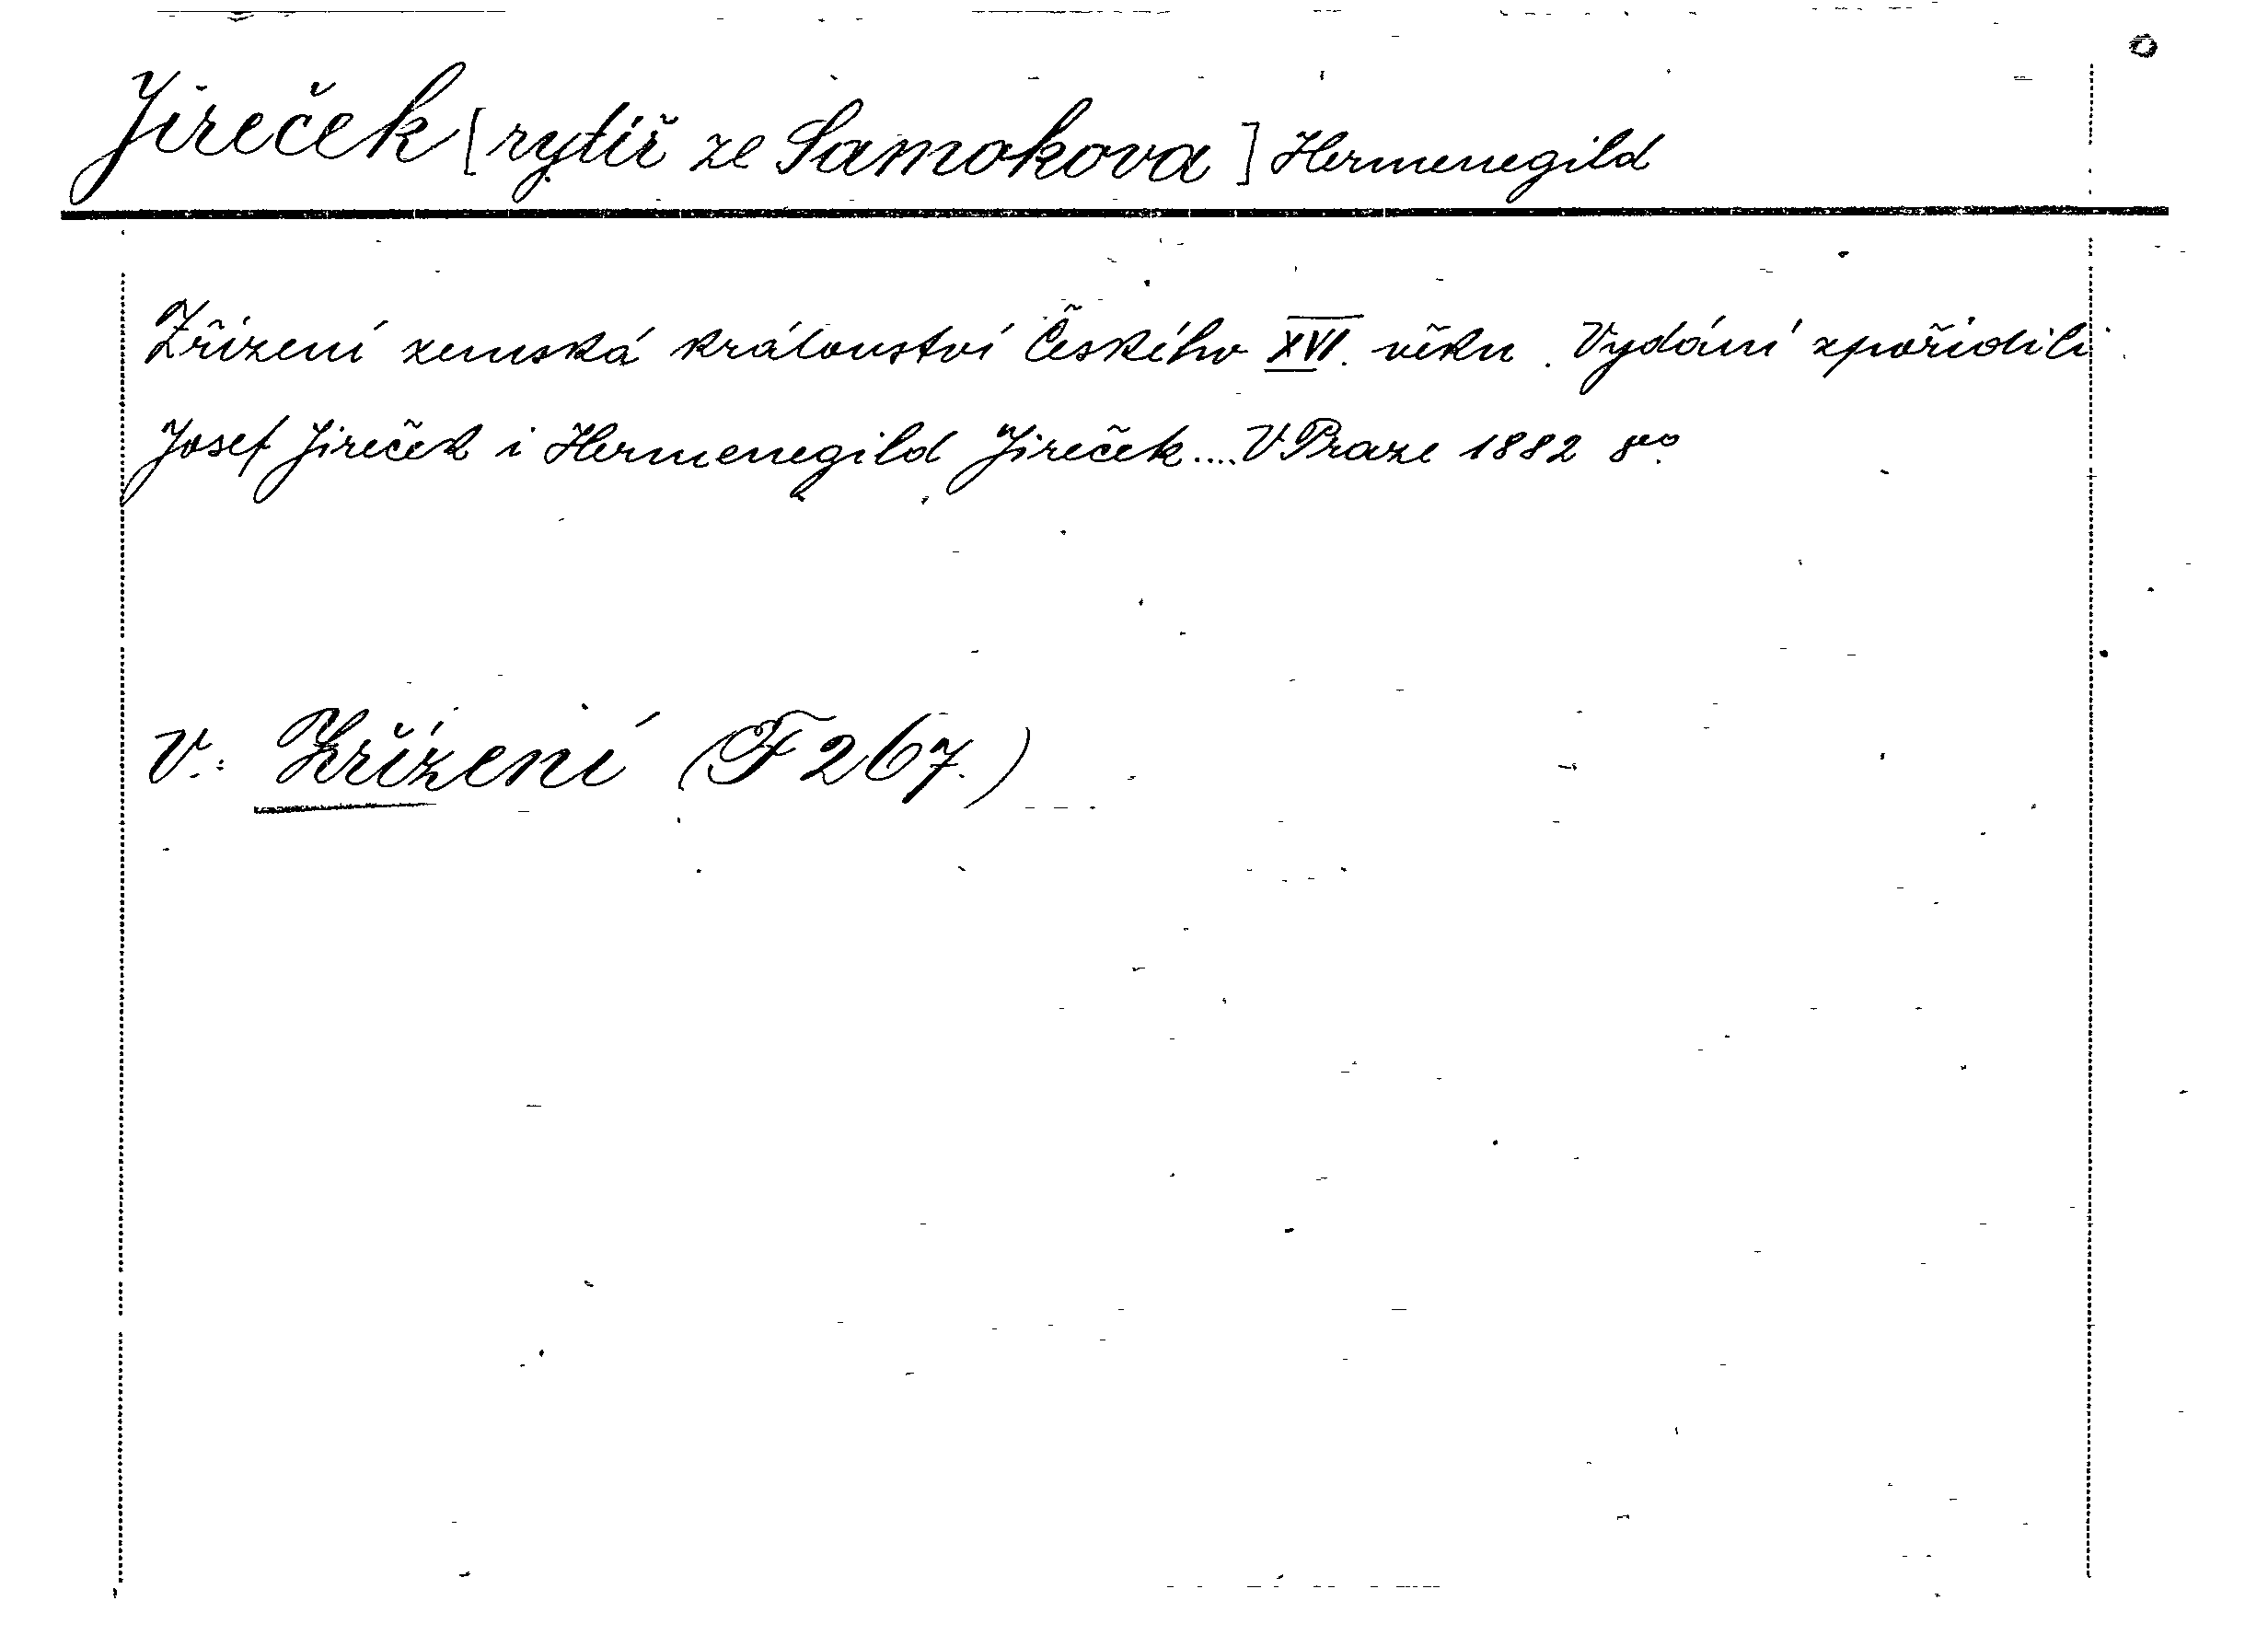 Jireček [rytíř ze Samokova] Hermenegild
Zřízení zemská království Českého XVI. věku. Vydání zpořídili
Josef Jireček i Hermenegild Jireček.... V Praze 1882 8vo.
V.: Zřízení (F 267.)